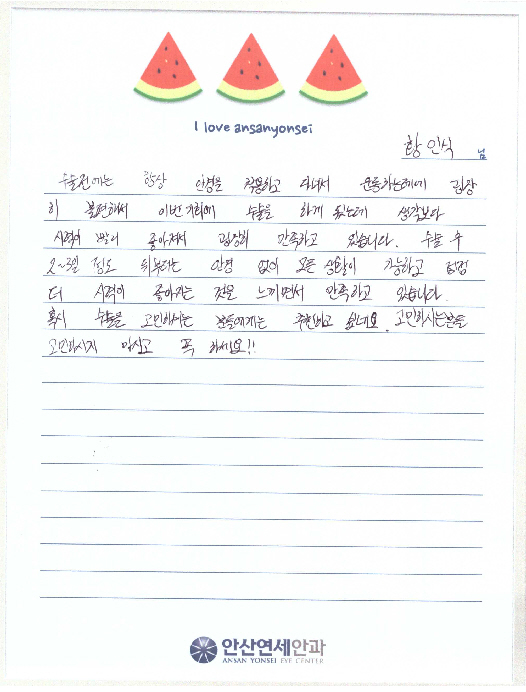 I love ansanyonsei
황인식 님
수술전에는 항상 안경을 착용하고 다녀서 운동하는데에 굉장
히 불편해서 이번 기회에 수술을 하게 됐는데 생각보다
시력이 많이 좋아져서 굉장히 만족하고 있습니다. 수술 후
2~3일 정도 뒤부터는 안경 없이 모든 생활이 가능하고 점점
더 시력이 좋아지는 것을 느끼면서 만족하고 있습니다.
혹시 수술을 고민하시는 분들에게는 추천하고 싶네요. 고민하시는분들
고민하시지 마시고 꼭 하세요!!
안산연세안과
ANSAN YONSEI EYE CENTER